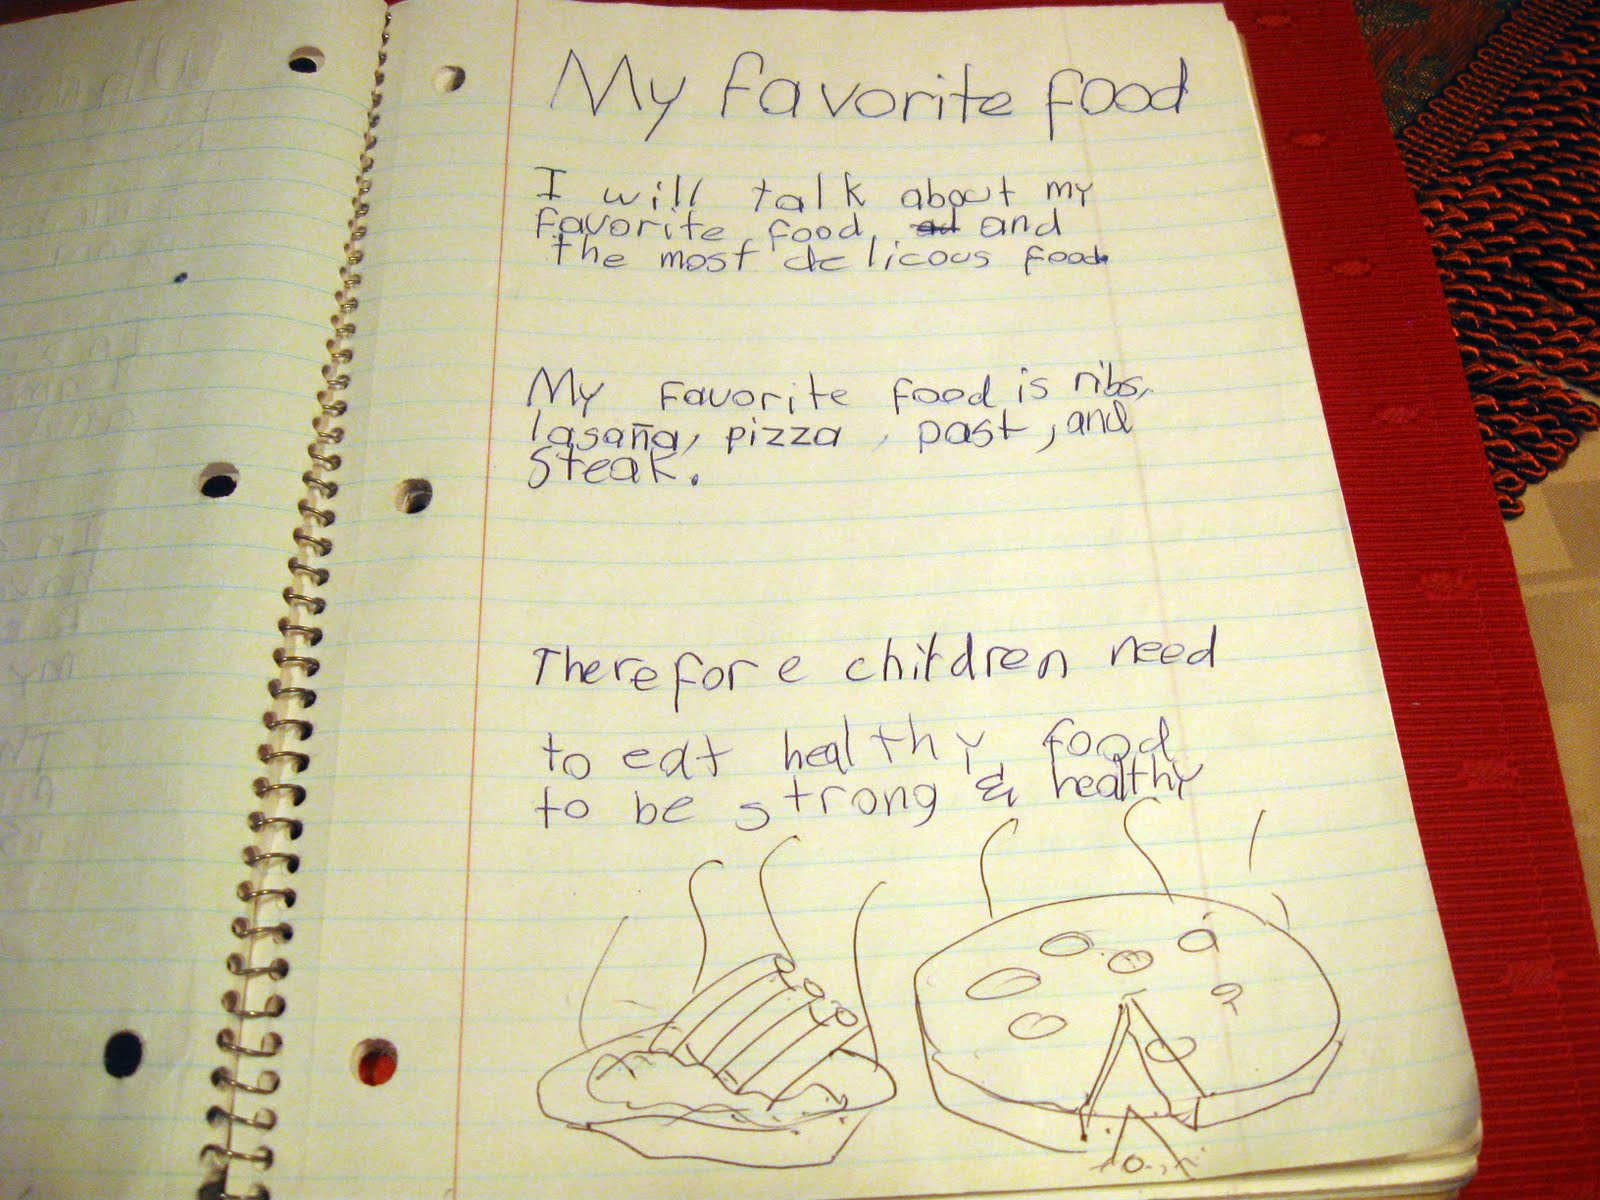 My favorite food
I will talk about my
favorite food, and
the most delicous food.
My favorite food is ribs,
lasaña, pizza, past, and
steak.
Therefore children need
to eat healthy food
to be strong & healthy